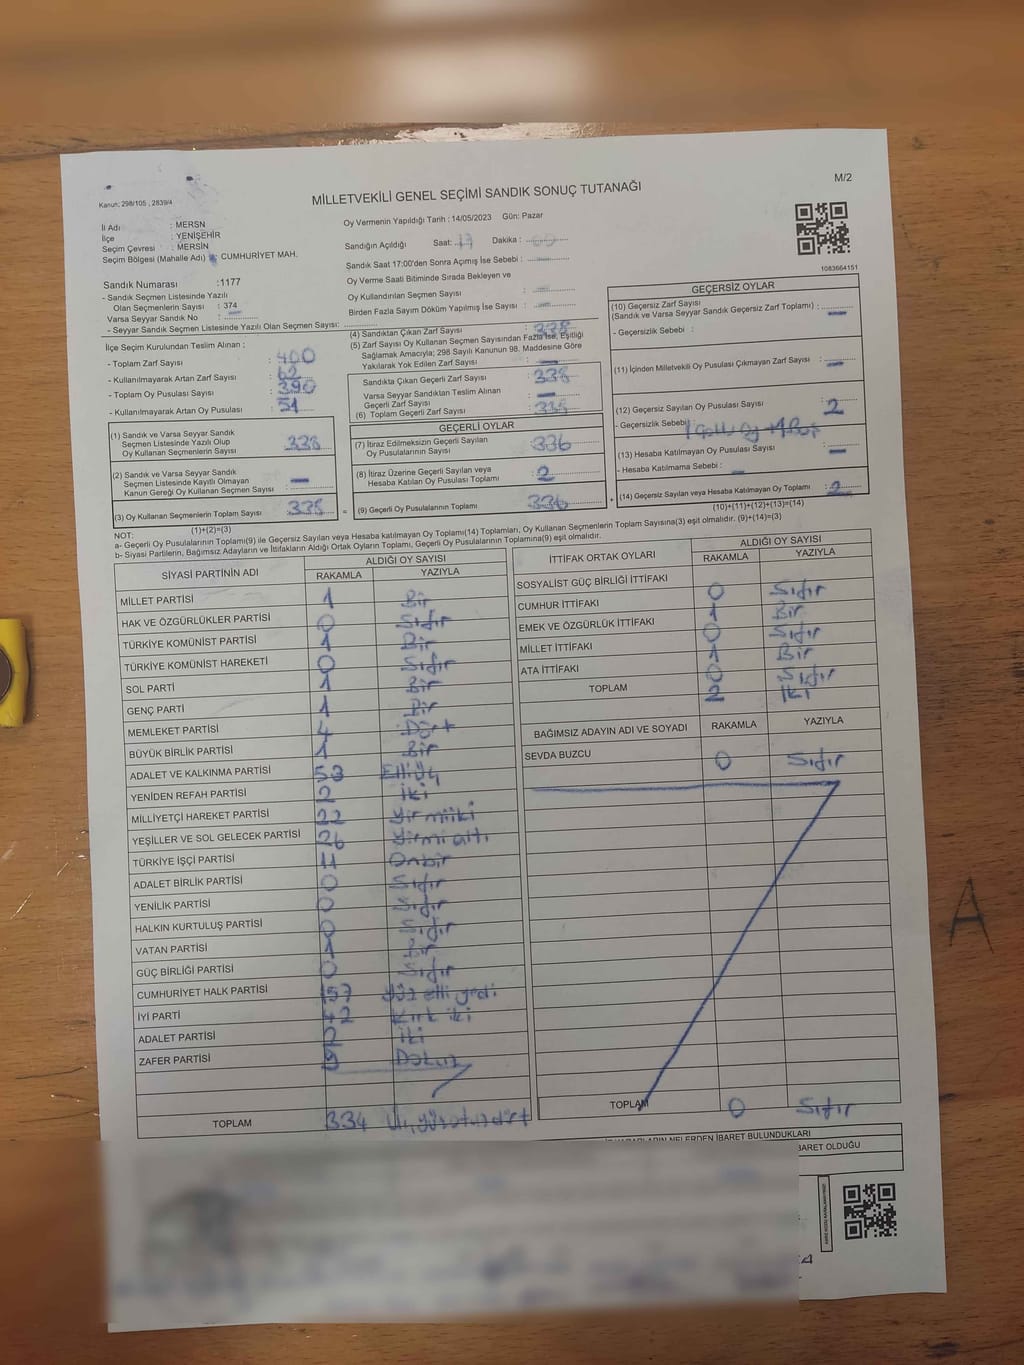 Kanun: 298/105 , 2839/4
MİLLETVEKİLİ GENEL SEÇİMİ SANDIK SONUÇ TUTANAĞI
M/2
İl Adı : MERSN
İlçe : YENİŞEHİR
Seçim Çevresi : MERSİN
Seçim Bölgesi (Mahalle Adı) : CUMHURİYET MAH.
Sandık Numarası :1177
- Sandık Seçmen Listesinde Yazılı
Olan Seçmenlerin Sayısı : 374
Varsa Seyyar Sandık No : —
- Seyyar Sandık Seçmen Listesinde Yazılı Olan Seçmen Sayısı:
Oy Vermenin Yapıldığı Tarih : 14/05/2023 Gün: Pazar
Sandığın Açıldığı Saat: 17 Dakika : 00
Sandık Saat 17:00'den Sonra Açımış İse Sebebi : —
Oy Verme Saati Bitiminde Sırada Bekleyen ve
Oy Kullandırılan Seçmen Sayısı : —
Birden Fazla Sayım Döküm Yapılmış İse Sayısı : —
1083664151
İlçe Seçim Kurulundan Teslim Alınan ;
- Toplam Zarf Sayısı : 400
- Kullanılmayarak Artan Zarf Sayısı : 62
- Toplam Oy Pusulası Sayısı : 390
- Kullanılmayarak Artan Oy Pusulası : 51
(1) Sandık ve Varsa Seyyar Sandık
Seçmen Listesinde Yazılı Olup
Oy Kullanan Seçmenlerin Sayısı : 338
(2) Sandık ve Varsa Seyyar Sandık
Seçmen Listesinde Kayıtlı Olmayan
Kanun Gereği Oy Kullanan Seçmen Sayısı : —
(3) Oy Kullanan Seçmenlerin Toplam Sayısı : 338
(1)+(2)=(3)
(4) Sandıktan Çıkan Zarf Sayısı : 338
(5) Zarf Sayısı Oy Kullanan Seçmen Sayısından Fazla İse, Eşitliği
Sağlamak Amacıyla; 298 Sayılı Kanunun 98. Maddesine Göre
Yakılarak Yok Edilen Zarf Sayısı : —
Sandıkta Çıkan Geçerli Zarf Sayısı : 338
Varsa Seyyar Sandıktan Teslim Alınan
Geçerli Zarf Sayısı : —
(6) Toplam Geçerli Zarf Sayısı : 338
GEÇERLİ OYLAR
(7) İtiraz Edilmeksizin Geçerli Sayılan
Oy Pusulalarının Sayısı : 336
(8) İtiraz Üzerine Geçerli Sayılan veya
Hesaba Katılan Oy Pusulası Toplamı : 2
= (9) Geçerli Oy Pusulalarının Toplamı : 336
GEÇERSİZ OYLAR
(10) Geçersiz Zarf Sayısı
(Sandık ve Varsa Seyyar Sandık Geçersiz Zarf Toplamı) : —
- Geçersizlik Sebebi :
(11) İçinden Milletvekili Oy Pusulası Çıkmayan Zarf Sayısı : —
(12) Geçersiz Sayılan Oy Pusulası Sayısı : 2
- Geçersizlik Sebebi :
(13) Hesaba Katılmayan Oy Pusulası Sayısı : —
- Hesaba Katılmama Sebebi : —
+ (14) Geçersiz Sayılan veya Hesaba Katılmayan Oy Toplamı : 2
(10)+(11)+(12)+(13)=(14)
NOT:
a- Geçerli Oy Pusulalarının Toplamı(9) ile Geçersiz Sayılan veya Hesaba katılmayan Oy Toplamı(14) Toplamları, Oy Kullanan Seçmenlerin Toplam Sayısına(3) eşit olmalıdır. (9)+(14)=(3)
b- Siyasi Partilerin, Bağımsız Adayların ve İttifakların Aldığı Ortak Oyların Toplamı, Geçerli Oy Pusulalarının Toplamına(9) eşit olmalıdır.
SİYASİ PARTİNİN ADI ALDIĞI OY SAYISI
RAKAMLA YAZIYLA
MİLLET PARTİSİ 1 Bir
HAK VE ÖZGÜRLÜKLER PARTİSİ 0 Sıfır
TÜRKİYE KOMÜNİST PARTİSİ 1 Bir
TÜRKİYE KOMÜNİST HAREKETİ 0 Sıfır
SOL PARTİ 1 Bir
GENÇ PARTİ 1 Bir
MEMLEKET PARTİSİ 4 Dört
BÜYÜK BİRLİK PARTİSİ 1 Bir
ADALET VE KALKINMA PARTİSİ 53 Elliüç
YENİDEN REFAH PARTİSİ 2 İki
MİLLİYETÇİ HAREKET PARTİSİ 22 Yirmiiki
YEŞİLLER VE SOL GELECEK PARTİSİ 26 Yirmialtı
TÜRKİYE İŞÇİ PARTİSİ 11 Onbir
ADALET BİRLİK PARTİSİ 0 Sıfır
YENİLİK PARTİSİ 0 Sıfır
HALKIN KURTULUŞ PARTİSİ 0 Sıfır
VATAN PARTİSİ 1 Bir
GÜÇ BİRLİĞİ PARTİSİ 0 Sıfır
CUMHURİYET HALK PARTİSİ 157 Yüz elli yedi
İYİ PARTİ 42 Kırk iki
ADALET PARTİSİ 2 iki
ZAFER PARTİSİ 9 Dokuz
TOPLAM 334 Üçyüzotuzdört
İTTİFAK ORTAK OYLARI ALDIĞI OY SAYISI
RAKAMLA YAZIYLA
SOSYALİST GÜÇ BİRLİĞİ İTTİFAKI 0 Sıfır
CUMHUR İTTİFAKI 1 Bir
EMEK VE ÖZGÜRLÜK İTTİFAKI 0 Sıfır
MİLLET İTTİFAKI 1 Bir
ATA İTTİFAKI 0 Sıfır
TOPLAM 2 İki
BAĞIMSIZ ADAYIN ADI VE SOYADI RAKAMLA YAZIYLA
SEVDA BUZCU 0 Sıfır
TOPLAM 0 Sıfır
NELERDEN İBARET BULUNDUKLARI
BARET OLDUĞU
A